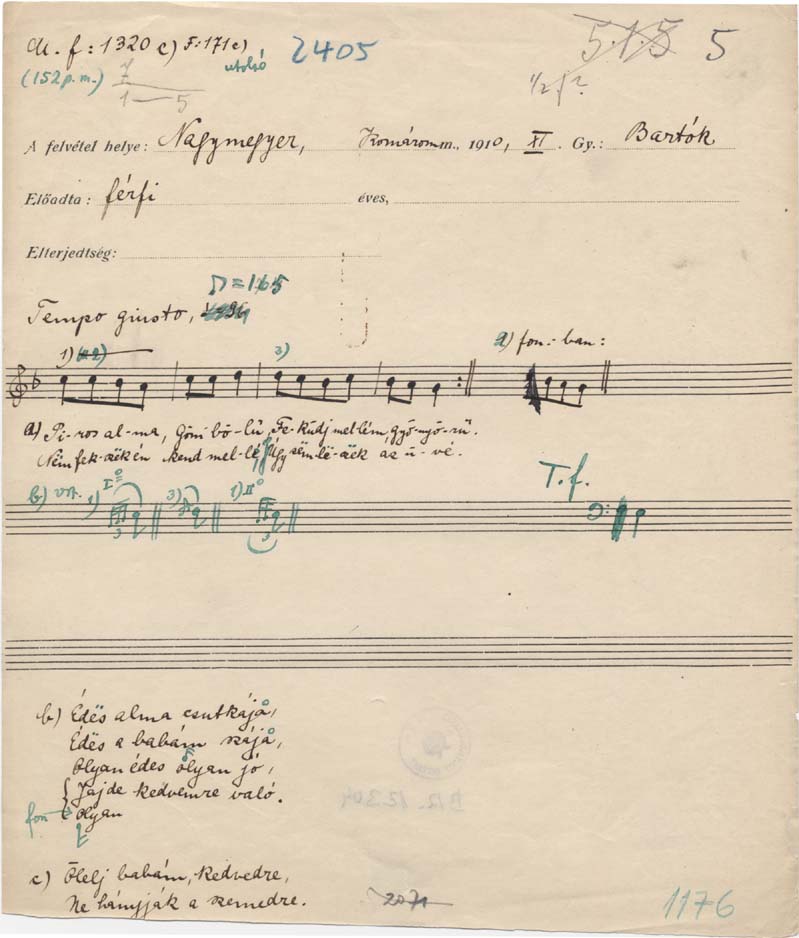 M. f: 1320 c) F: 171c) 2405 5.1.5 5
(152 p.m.) utolsó 7 1/2 f?
1—5
A felvétel helye: Nagymegyer, Komárom m., 1910, XI. Gy.: Bartók
Előadta: férfi éves,
Elterjedtség:
♫=165
Tempo giusto,
1) 3) a) fon.-ban:
a) Pi-ros al-ma, Göm-bö-lű, Fe-küdj mel-lém, gyö-nyö-rű.
Nem fek-szëk én kend mel-lé, Úgy sëm lë-szëk az ü-vé.
T.f.
b) vsz. 1) I° 3) 1) II°
3 3
b) Édës alma csutkájå,
Édës a babám szájå,
Olyan édes olyan jó,
Jajde kedvemre való.
fon olyan
c) Ölelj babám, kedvedre,
Ne hányják a szemedre.
2071 1176